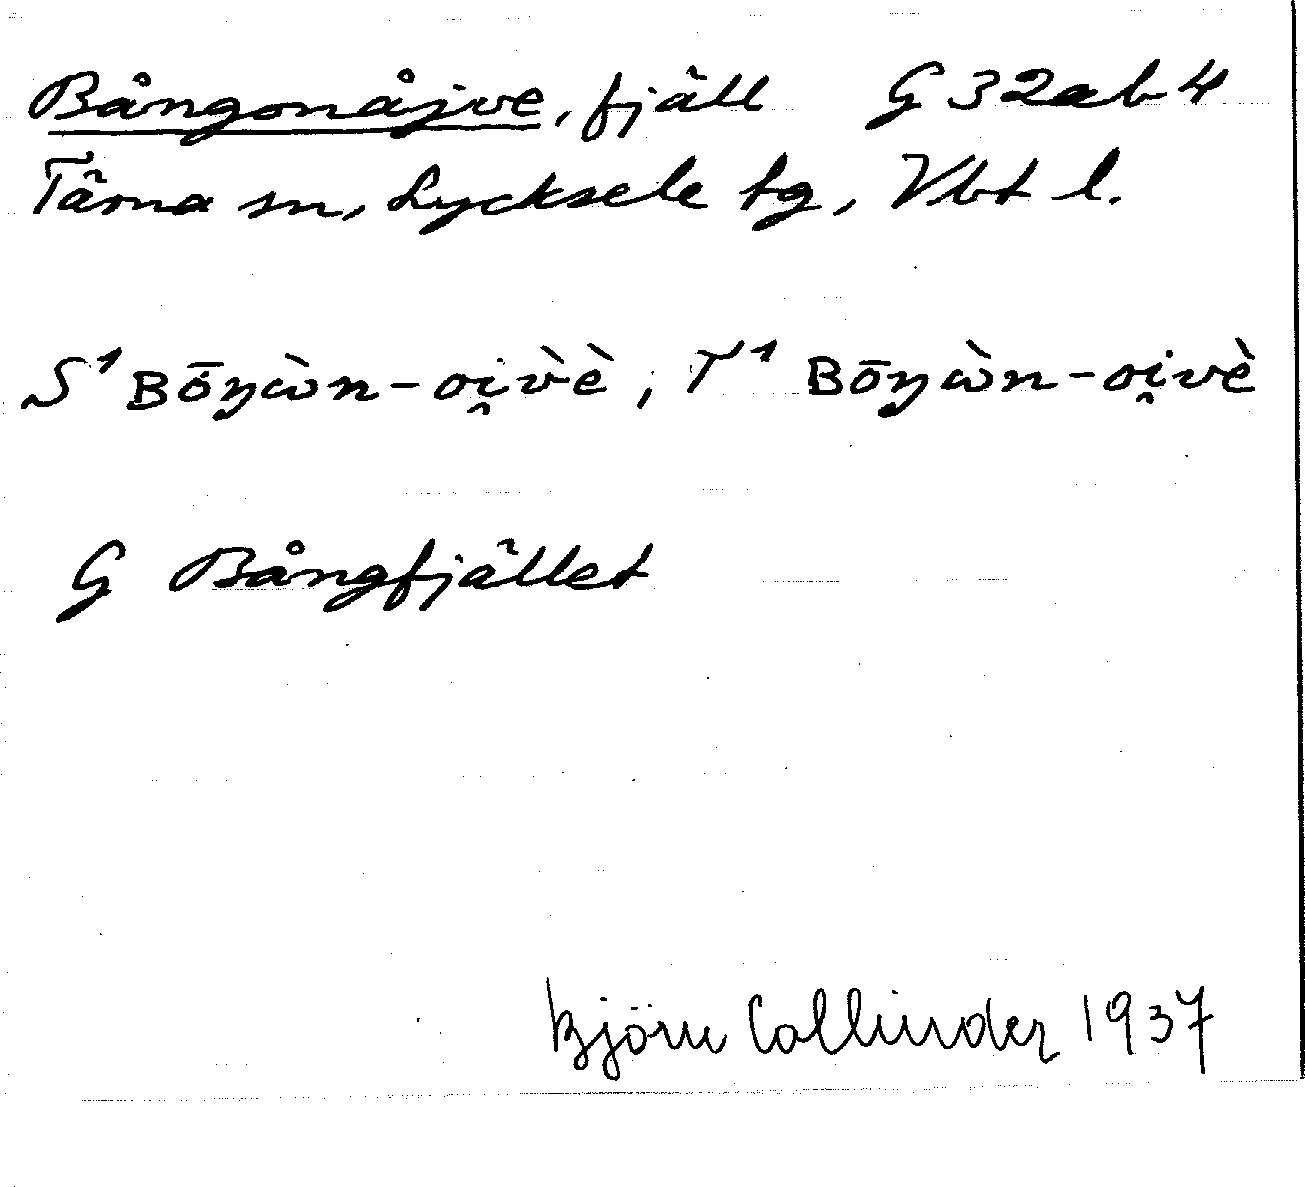 Bångonåjve, fjäll G 32ab4
Tärna sn, Lycksele tg, Vbt l.
S¹ Bōŋὼn-oi̯v̀è, T¹ Bōŋὼn-oi̯vè
G Bångfjället
Björn Collinder 1937